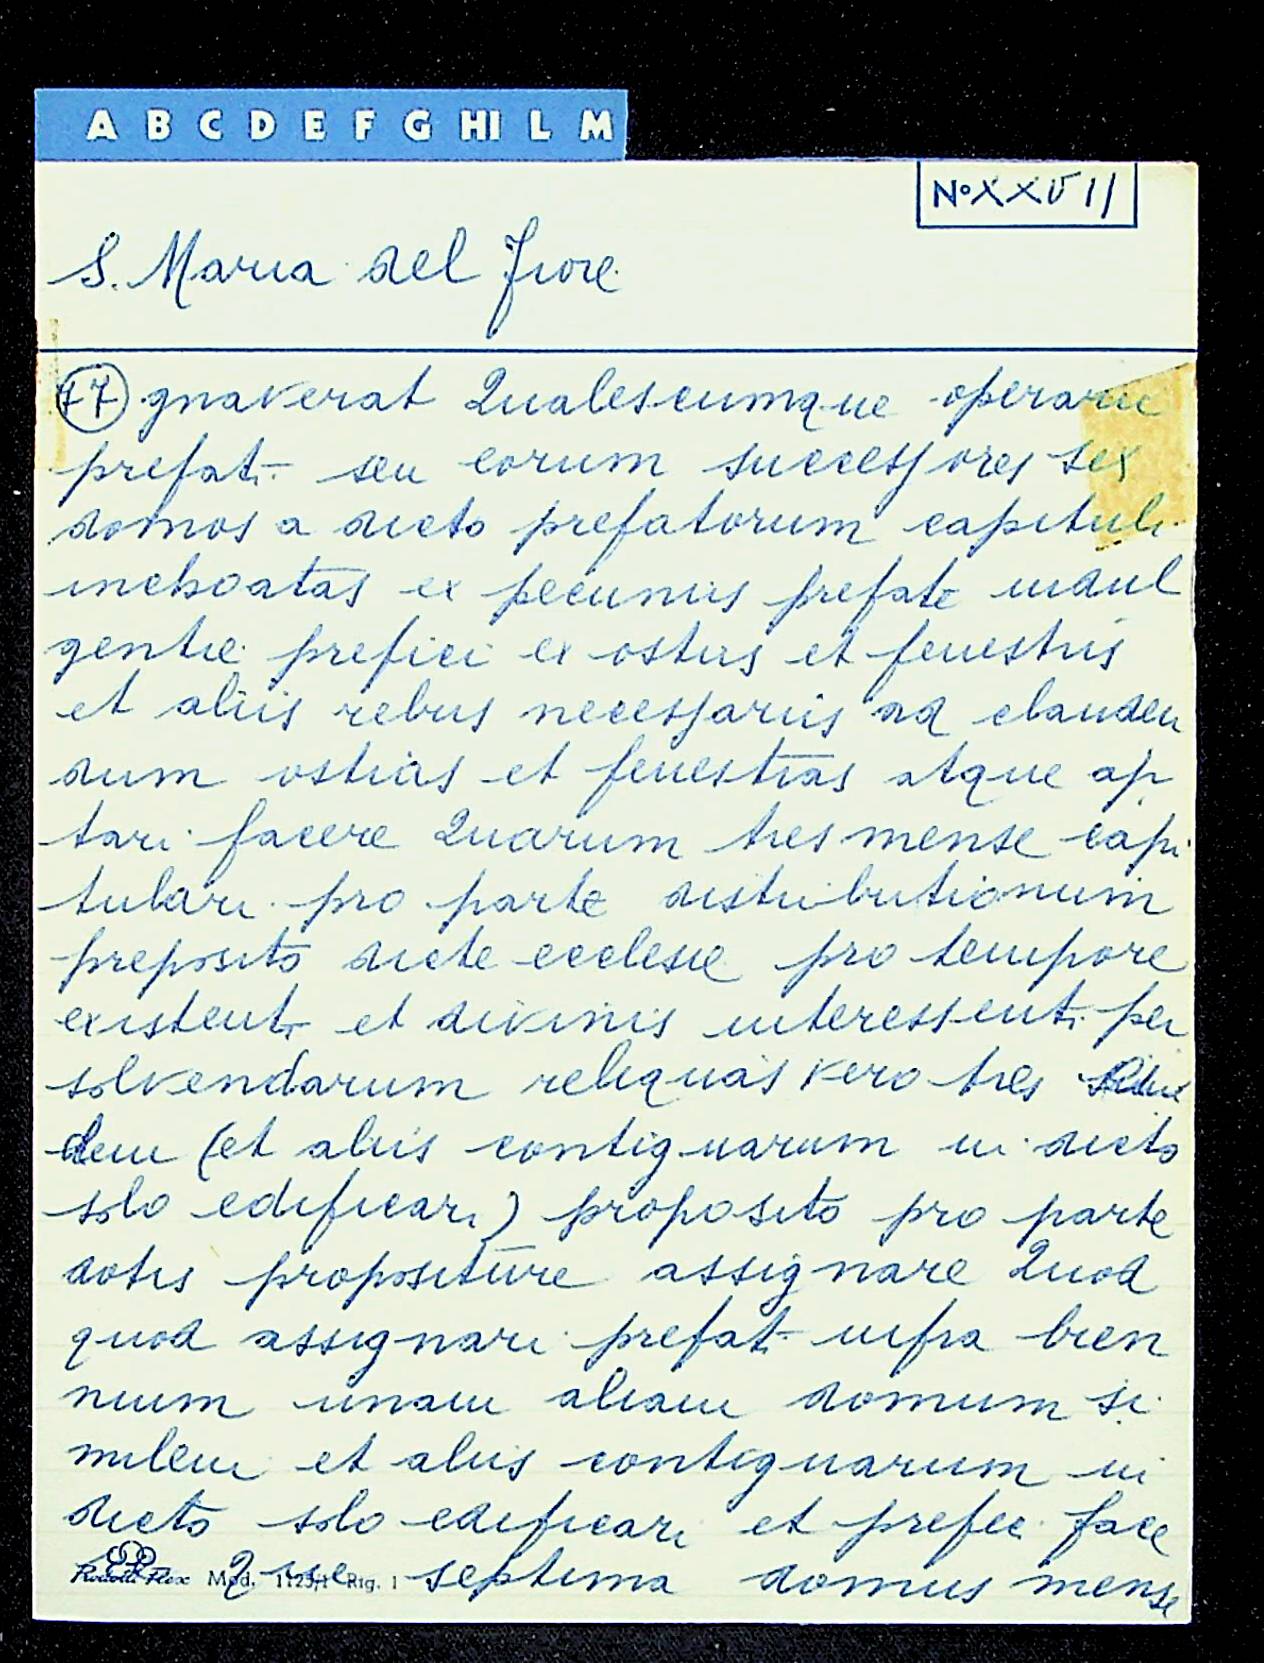 A B C D E F G HI L M
No XXVII
S. Maria del Fiore
77 gnaverat Qualescumque operarii
prefat. seu eorum successores sex
domos a dicto prefatorum capituli
inchoatas ex pecuniis prefate indul
gentie prefici ex ostiis et fenestris
et aliis rebus necessariis ad clauden
dum ostias et fenestras atque ap
tari facere Quarum tres mense capi
tulari pro parte distributionum
preposito dicte ecclesie pro tempore
existent. et divinis interessent. per
solvendarum reliquas vero tres
dem (et aliis contiguarum in dicto
solo edificari) proposito pro parte
dotis propositure assignare Quod
quod assignari prefat. infra bien
nium unam aliam domum si
milem et aliis contiguarum in
dicto solo edificari et prefec. face
Que septima domus mense
Mod. 1125/1 Rig. 1